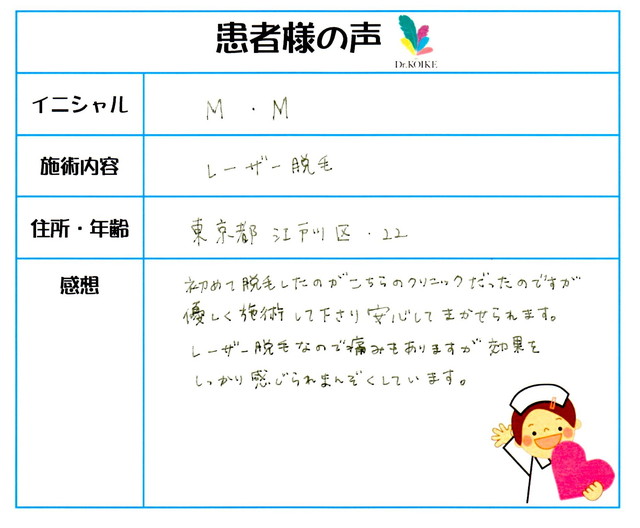 患者様の声
Dr.KOIKE
イニシャル
M・M
施術内容
レーザー脱毛
住所・年齢
東京都江戸川区・22
感想
初めて脱毛したのがこちらのクリニックだったのですが
優しく施術して下さり安心してまかせられます。
レーザー脱毛なので痛みもありますが効果を
しっかり感じられまんぞくしています。